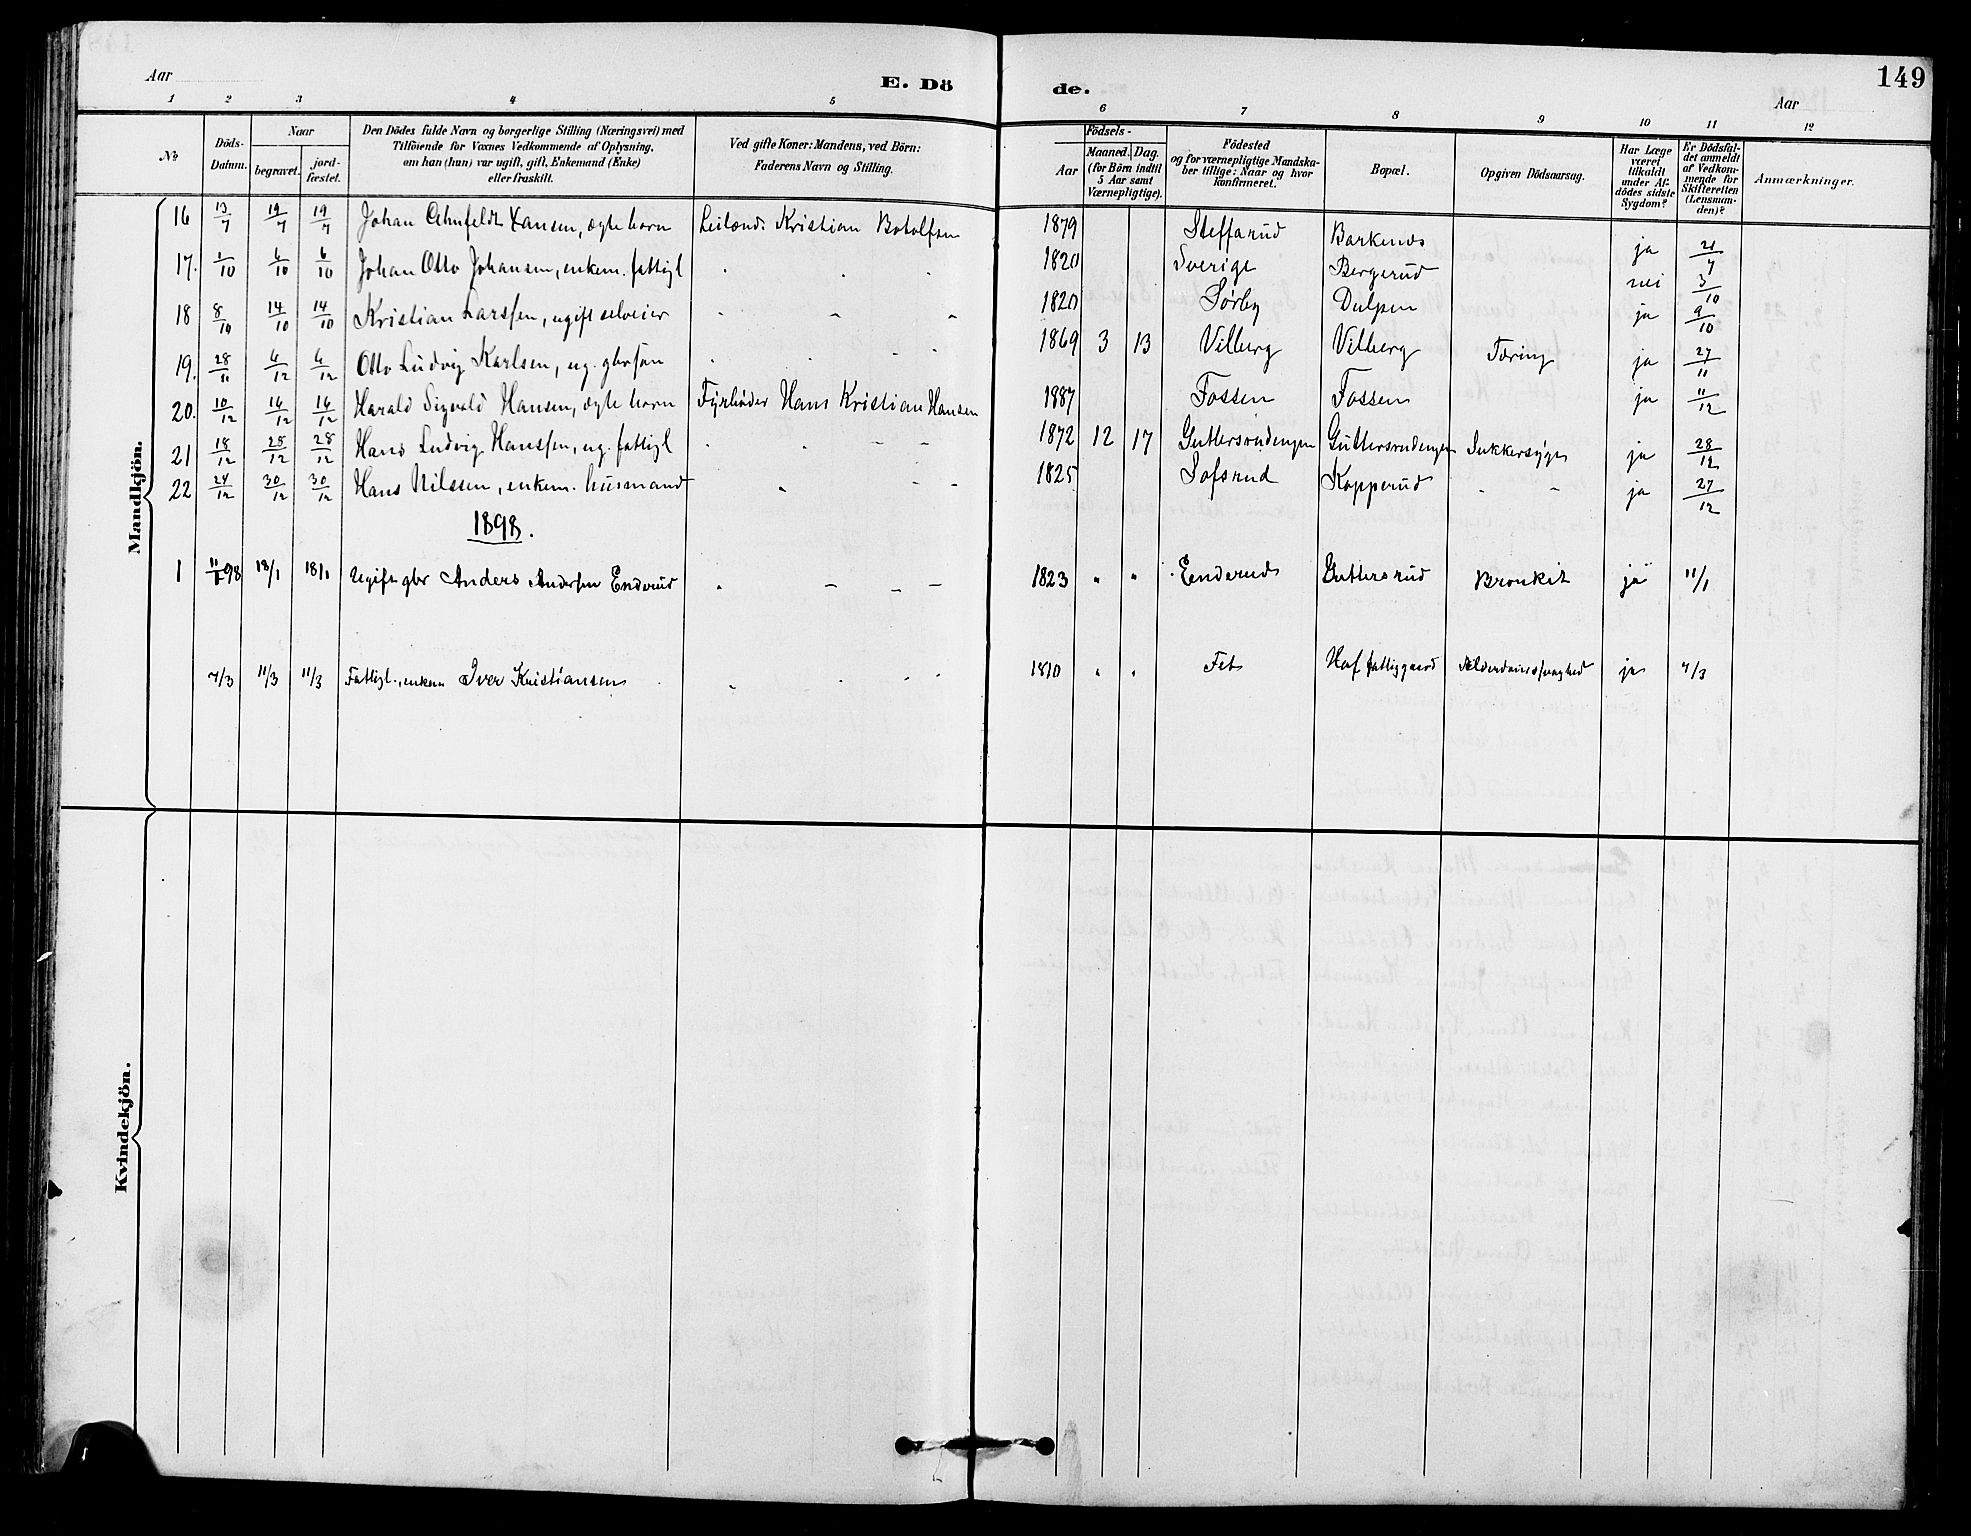 149
Aar
E. Döde.
Aar
1 2 3 4 5 6 7 8 9 10 11 12
No
Döds-Datum.
Naar
begravet.
jord-fæstet.
Den Dödes fulde Navn og borgerlige Stilling (Næringsvei) med
Tilföiende for Voxnes Vedkommende af Oplysning,
om han (hun) var ugift, gift, Enkemand (Enke)
eller fraskilt.
Ved gifte Koner: Mandens, ved Börn:
Faderens Navn og Stilling.
Födsels-
Aar
Maaned. Dag.
(for Börn indtil
5 Aar samt
Værnepligtige).
Födested
og for værnepligtige Mandska-
ber tillige: Naar og hvor
konfirmeret.
Bopæl.
Opgiven Dödsaarsag.
Har Læge
været
tilkaldt
under Af-
dödes sidste
Sygdom?
Er Dödsfal-
det anmeldt
af Vedkom-
mende for
Skifteretten
(Lensman-
den)?
Anmærkninger.
Mandkjön.
16 13/7 19/7 19/7 Johan Ahnfeldt Hansen, ægte barn Leilænd. Kristian Botolfsen 1879 Steffarud Barkenæs ja 21/7
17. 1/10 6/10 6/10 Johan Otto Johansen, enkem. fattigl 1820 Sverige Bergerud nei 3/10
18 8/10 14/10 14/10 Kristian Larssen, ugift selveier 1820 Sørby Dulpen ja 9/10
19. 28/11 6/12 6/12 Otto Ludvig Karlsen, ug. gbrsøn 1869 3 13 Vilberg Vilberg Tæring ja 27/11
20. 10/12 16/12 16/12 Harald Sigvald Hansen, ægte barn Fyrbøder Hans Kristian Hansen 1887 Fossen Fossen ja 11/12
21 18/12 28/12 28/12 Hans Ludvig Hanssen, ug. fattigl 1872 12 17 Guttersrudengen Guttersrudengen Sukkersyge ja 28/12
22 24/12 30/12 30/12 Hans Nilssen, enkem. husmand 1825 Sofsrud Kopperud ja 27/12
1898.
1 11/1 98 18/1 18/1 Ugift gbr Anders Andersen Enderud 1823 " " Enderud Guttersrud Bronkit ja 11/1
4/3 11/3 11/3 Fattigl., enkem Iver Kristiansen 1810 " " Fet Hof fattiggaard Alderdomssvaghed ja 4/3
Kvindekjön.